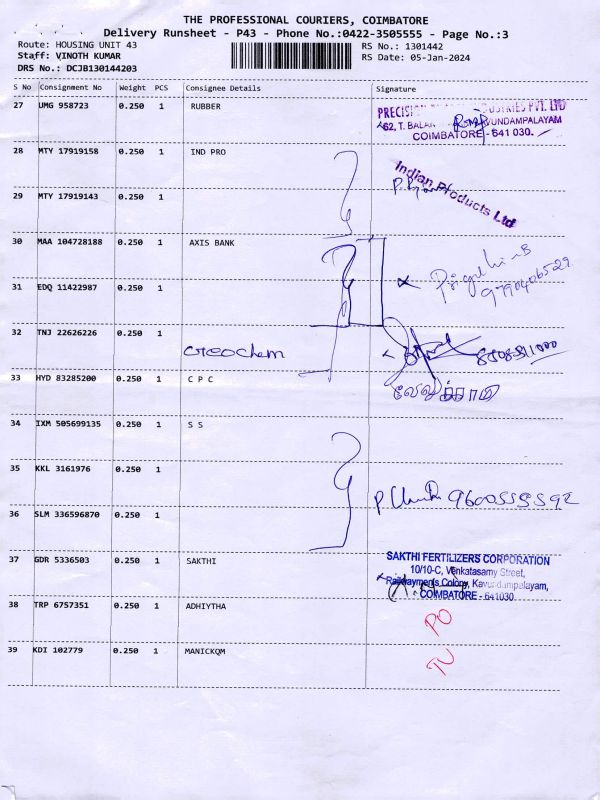 THE PROFESSIONAL COURIERS, COIMBATORE
Delivery Runsheet - P43 - Phone No.:0422-3505555 - Page No.:3
Route: HOUSING UNIT 43 RS No.: 1301442
Staff: VINOTH KUMAR RS Date: 05-Jan-2024
DRS No.: DCJB130144203
S No Consignment No Weight PCS Consignee Details Signature
27 UMG 958723 0.250 1 RUBBER
PRECISION INDUSTRIES PVT. LTD
62, T. BALAN UNDAMPALAYAM
COIMBATORE - 641 030.
28 MTY 17919158 0.250 1 IND PRO
Indian Products Ltd
29 MTY 17919143 0.250 1
30 MAA 104728188 0.250 1 AXIS BANK
31 EDQ 11422987 0.250 1
9790406529
32 TNJ 22626226 0.250 1
creochem
33 HYD 83285200 0.250 1 C P C
34 IXM 505699135 0.250 1 S S
35 KKL 3161976 0.250 1
9600555592
36 SLM 336596870 0.250 1
37 GDR 5336503 0.250 1 SAKTHI
SAKTHI FERTILIZERS CORPORATION
10/10-C, Venkatasamy Street,
Railwaymen's Colony, Kavundampalayam,
COIMBATORE - 641030.
38 TRP 6757351 0.250 1 ADHIYTHA
PO
39 KDI 102779 0.250 1 MANICKQM
TV